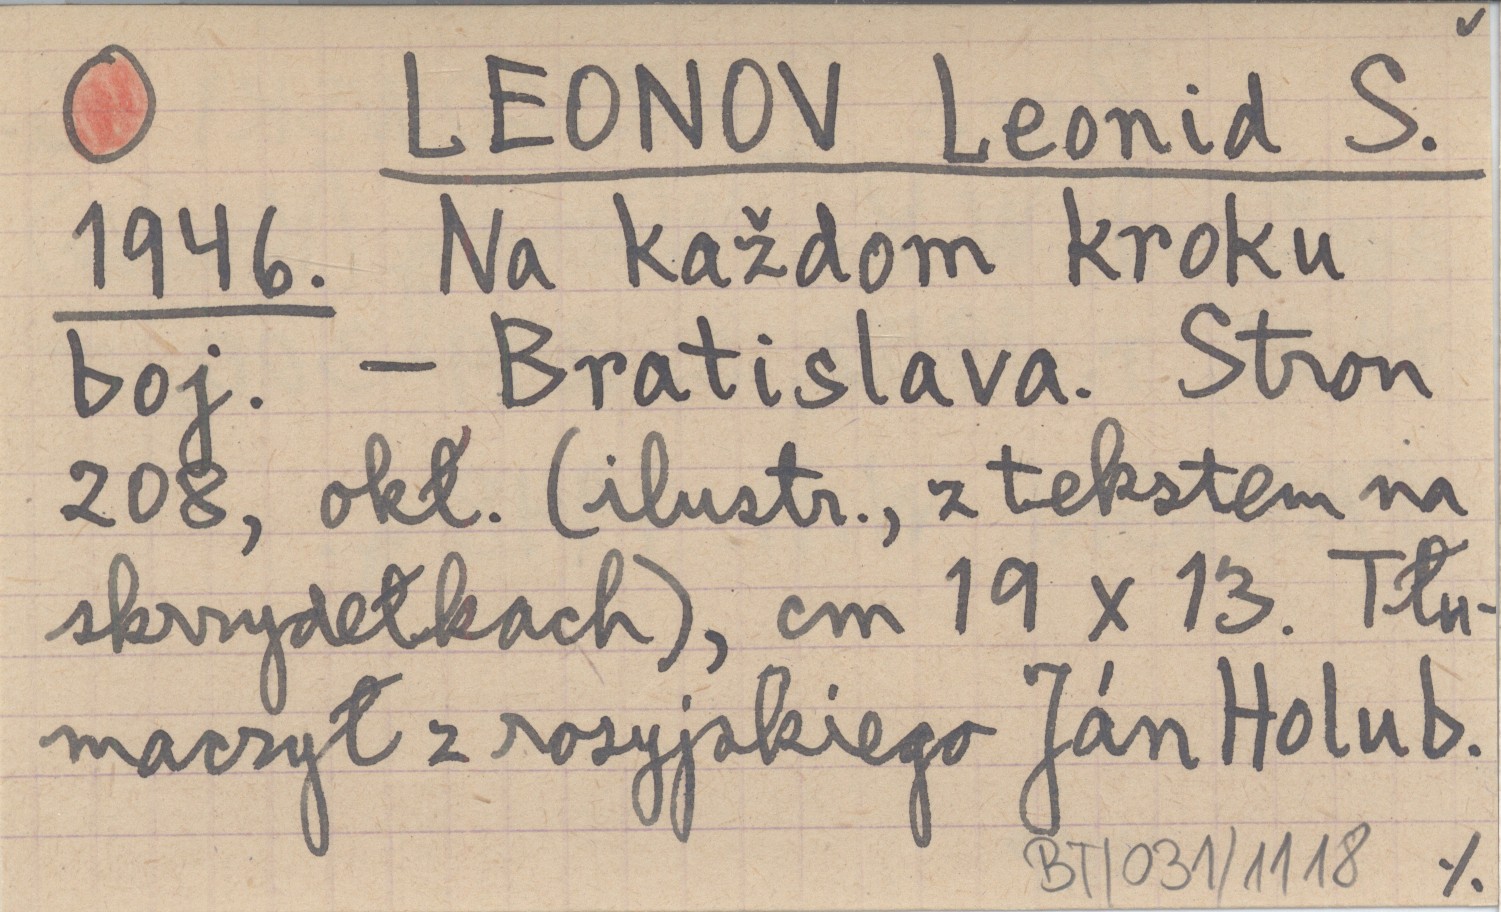 LEONOV Leonid S.
1946. Na každom kroku
boj. — Bratislava. Stron
208, okł. (ilustr., z tekstem na
skrzydełkach), cm 19 x 13. Tłu-
maczył z rosyjskiego Ján Holub.
BT/031/1118 ./.